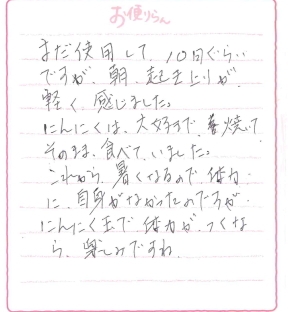 お便りらん
まだ使用して、10日ぐらい
ですが、朝、起き上りが、
軽く、感じました。
にんにくは、大好きで、焼いて
そのまま、食べて、いました。
これから、暑くなるので、体力
に、自身がなかったのですが、
にんにく玉で、体力が、つくな
ら、楽しみですね